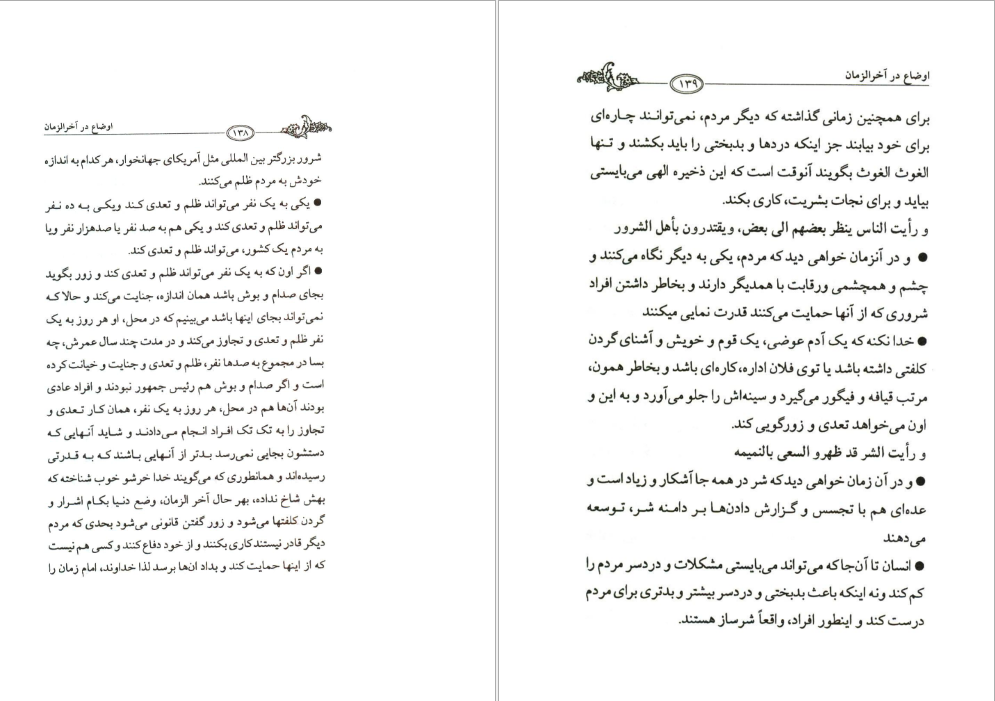 اوضاع در آخرالزمان
۱۳۸
شرور بزرگتر بین المللی مثل آمریکای جهانخوار، هر کدام به اندازه
خودش به مردم ظلم می‌کنند.
● یکی به یک نفر می‌تواند ظلم و تعدی کند ویکی به ده نفر
می‌تواند ظلم و تعدی کند و یکی هم به صد نفر یا صدهزار نفر ویا
به مردم یک کشور، می‌تواند ظلم و تعدی کند.
● اگر اون که به یک نفر می‌تواند ظلم و تعدی کند و زور بگوید
بجای صدام و بوش باشد همان اندازه، جنایت می‌کند و حالا که
نمی‌تواند بجای اینها باشد می‌بینیم که در محل، او هر روز به یک
نفر ظلم و تعدی و تجاوز می‌کند و در مدت چند سال عمرش، چه
بسا در مجموع به صدها نفر، ظلم و تعدی و جنایت و خیانت کرده
است و اگر صدام و بوش هم رئیس جمهور نبودند و افراد عادی
بودند آن‌ها هم در محل، هر روز به یک نفر، همان کار تعدی و
تجاوز را به تک تک افراد انجام می‌دادند و شاید آنهایی که
دستشون بجایی نمی‌رسد بدتر از آنهایی باشند که به قدرتی
رسیده‌اند و همانطوری که می‌گویند خدا خرشو خوب شناخته که
بهش شاخ نداده، بهر حال آخر الزمان، وضع دنیا بکام اشرار و
گردن کلفتها می‌شود و زور گفتن قانونی می‌شود بحدی که مردم
دیگر قادر نیستند کاری بکنند و از خود دفاع کنند و کسی هم نیست
که از اینها حمایت کند و بداد ان‌ها برسد لذا خداوند، امام زمان را
اوضاع در آخرالزمان
۱۳۹
برای همچنین زمانی گذاشته که دیگر مردم، نمی‌توانند چاره‌ای
برای خود بیابند جز اینکه دردها و بدبختی را باید بکشند و تنها
الغوث الغوث بگویند آنوقت است که این ذخیره الهی می‌بایستی
بیاید و برای نجات بشریت، کاری بکند.
و رأیت الناس ینظر بعضهم الی بعض، ویقتدرون بأهل الشرور
● و در آنزمان خواهی دید که مردم، یکی به دیگر نگاه می‌کنند و
چشم و همچشمی ورقابت با همدیگر دارند و بخاطر داشتن افراد
شروری که از آنها حمایت می‌کنند قدرت نمایی میکنند
● خدا نکنه که یک آدم عوضی، یک قوم و خویش و آشنای گردن
کلفتی داشته باشد یا توی فلان اداره، کاره‌ای باشد و بخاطر همون،
مرتب قیافه و فیگور می‌گیرد و سینه‌اش را جلو می‌آورد و به این و
اون می‌خواهد تعدی و زورگویی کند.
و رأیت الشر قد ظهرو السعی بالنمیمه
● و در آن زمان خواهی دید که شر در همه جا آشکار و زیاد است و
عده‌ای هم با تجسس و گزارش دادن‌ها بر دامنه شر، توسعه
می‌دهند
● انسان تا آن‌جا که می‌تواند می‌بایستی مشکلات و دردسر مردم را
کم کند ونه اینکه باعث بدبختی و دردسر بیشتر و بدتری برای مردم
درست کند و اینطور افراد، واقعاً شرساز هستند.